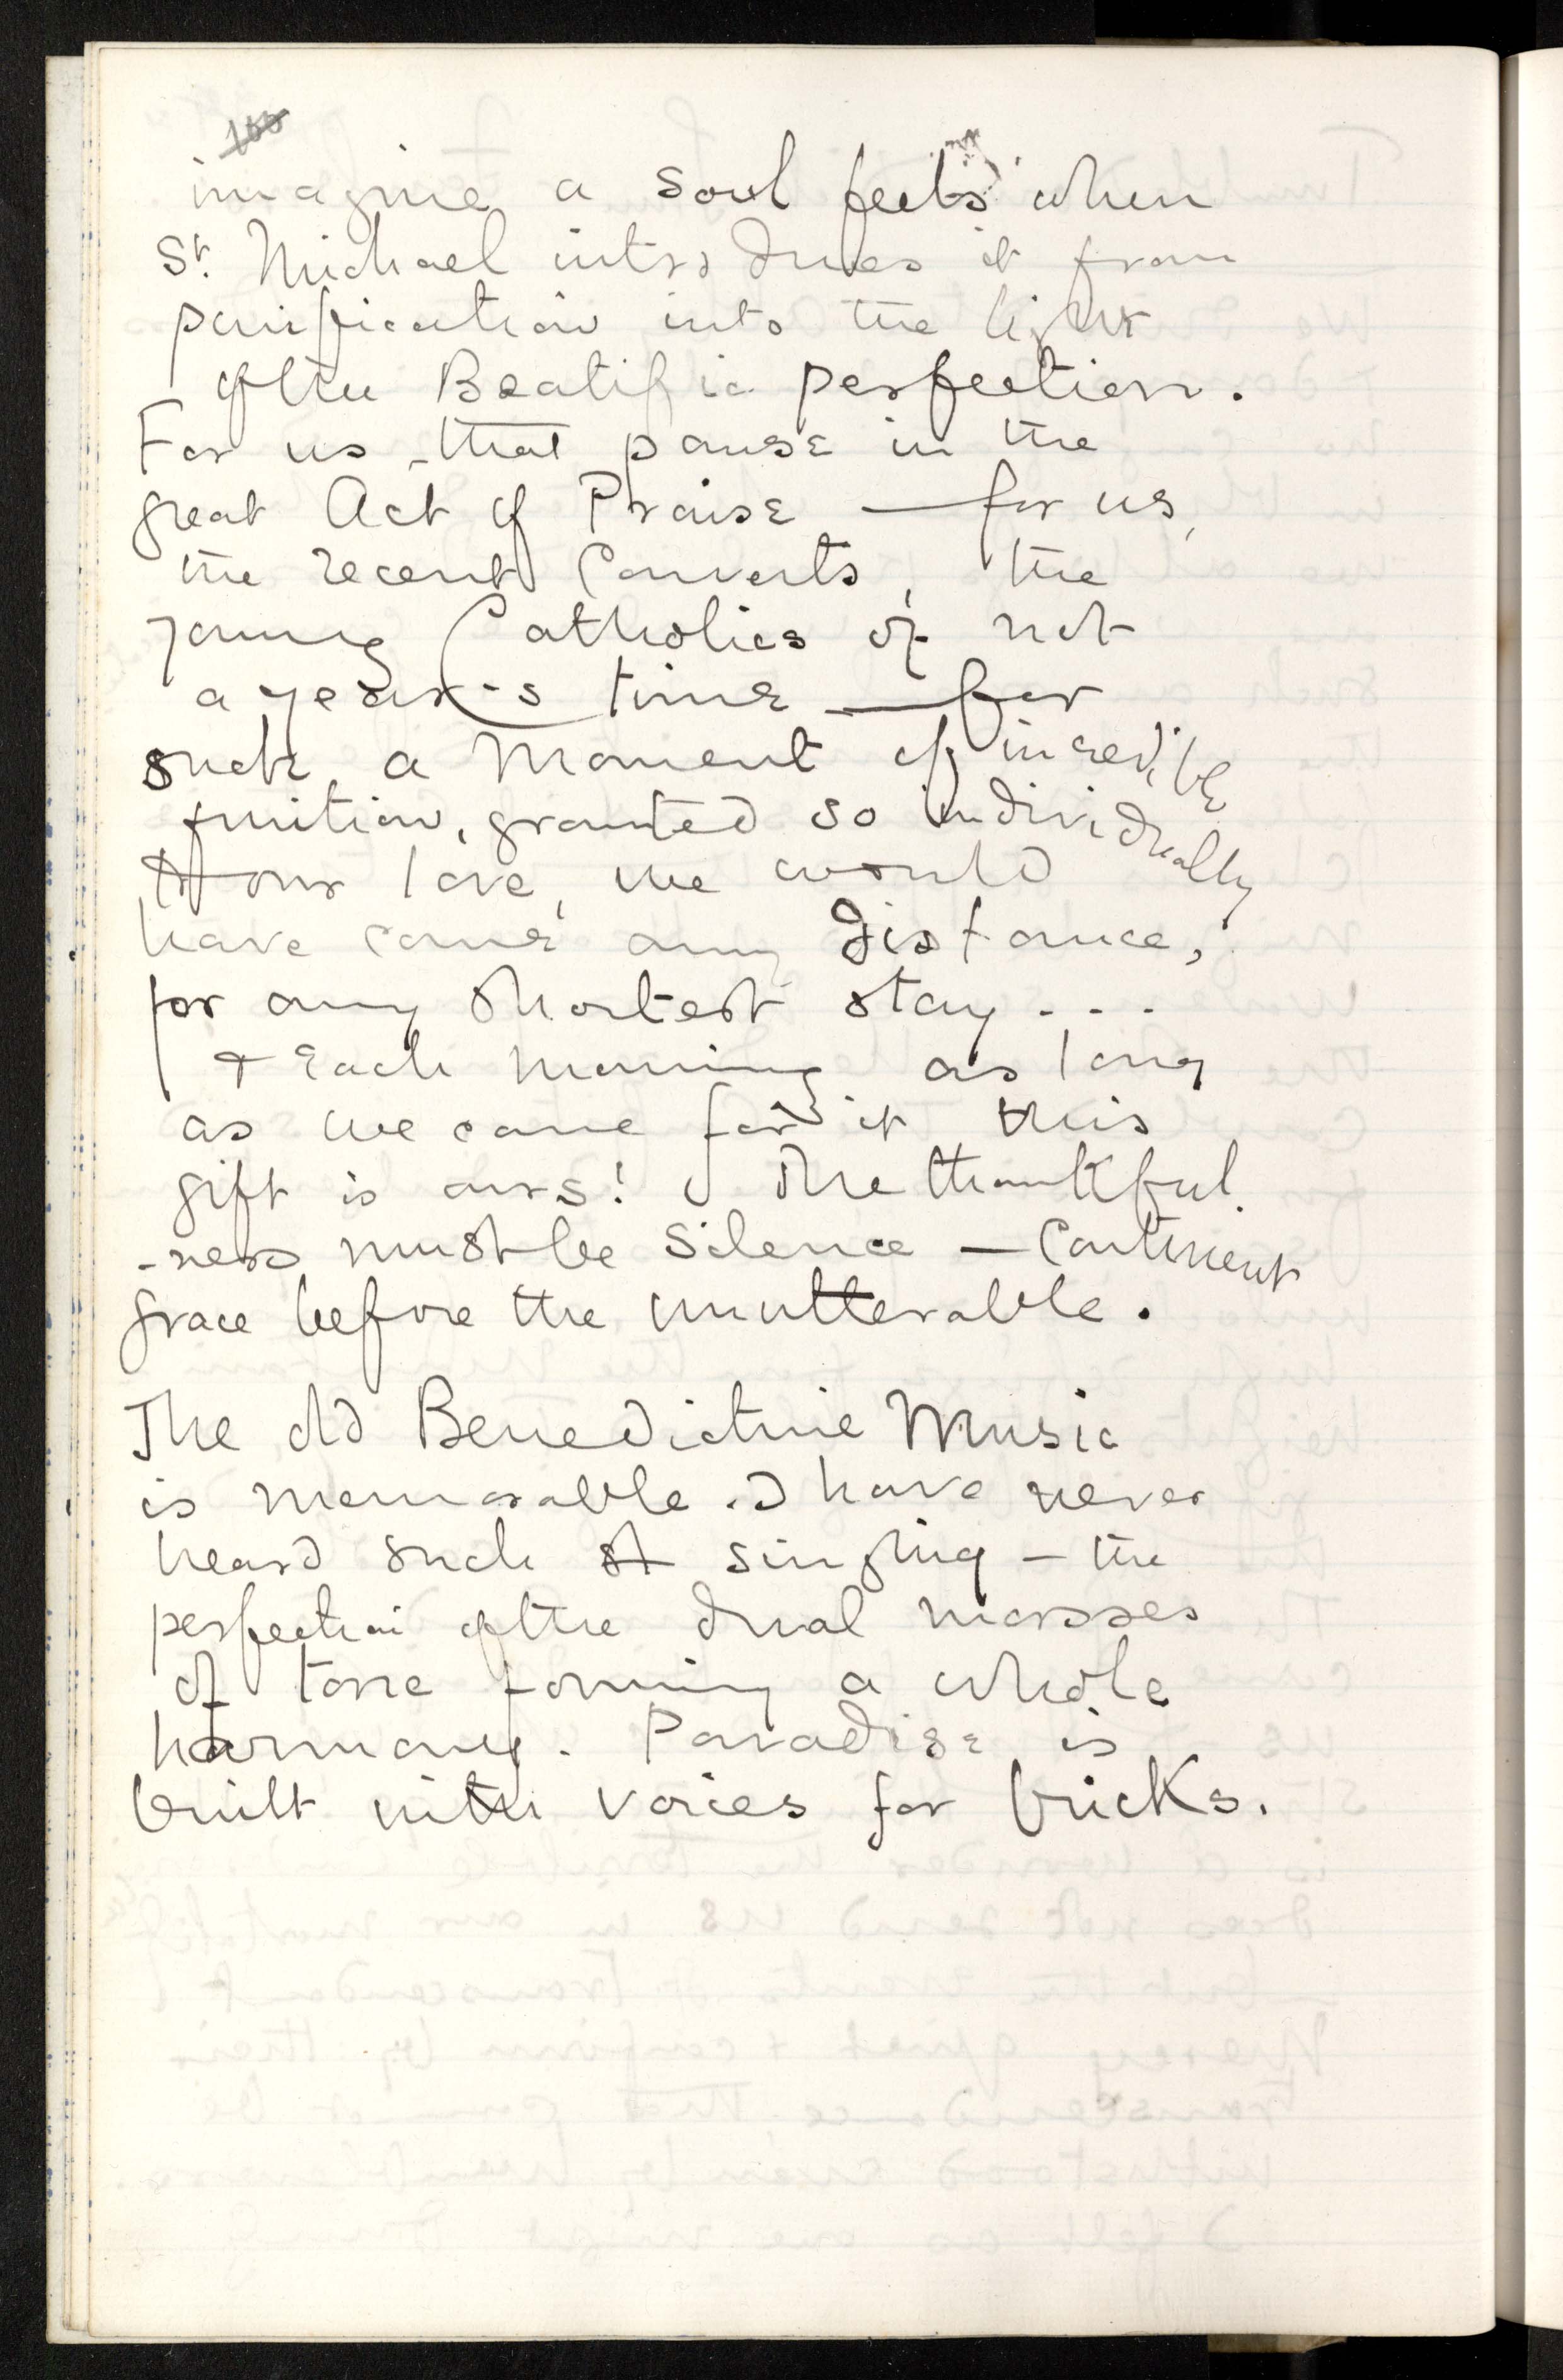 imagine a soul feels when
St. Michael introduces it from
purification into the light
of the Beatific perfection.
For us, that pause in the
great Act of Praise — for us,
the recent Converts, the
young Catholics of not
a year's time — for
such a moment of incredible
fruition, granted so individually
to our love, we would
have come any distance,
for any shortest stay...
& each morning as long
as we came for it this
gift is ours! The thankful
-ness must be silence — Continent
grace before the unutterable.
The old Benedictine Music
is memorable. I have never
heard such singing – the
perfection of the dual masses
of tone forming a whole
harmony. Paradise is
built with voices for bricks.